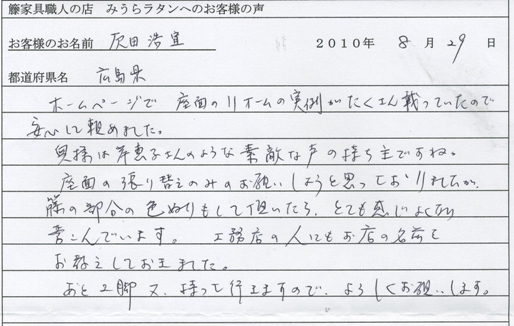 籐家具職人の店 みうらラタンへのお客様の声
お客様のお名前 灰田浩宜 2010年 8月 29日
都道府県名 広島県
ホームページで 座面のリホームの実例がたくさん載っていたので
安心して頼めました。
奥様は芽恵子さんのような素敵な声の持ち主ですね。
座面の張り替えのみのお願いしようと思っておりましたが、
籐の部分の色ぬりもして頂いたら、とても感じよくなり
喜こんでいます。 工務店の人にもお店の名前を
お教えしておきました。
あと2脚 又、持って行きますので、よろしくお願いします。